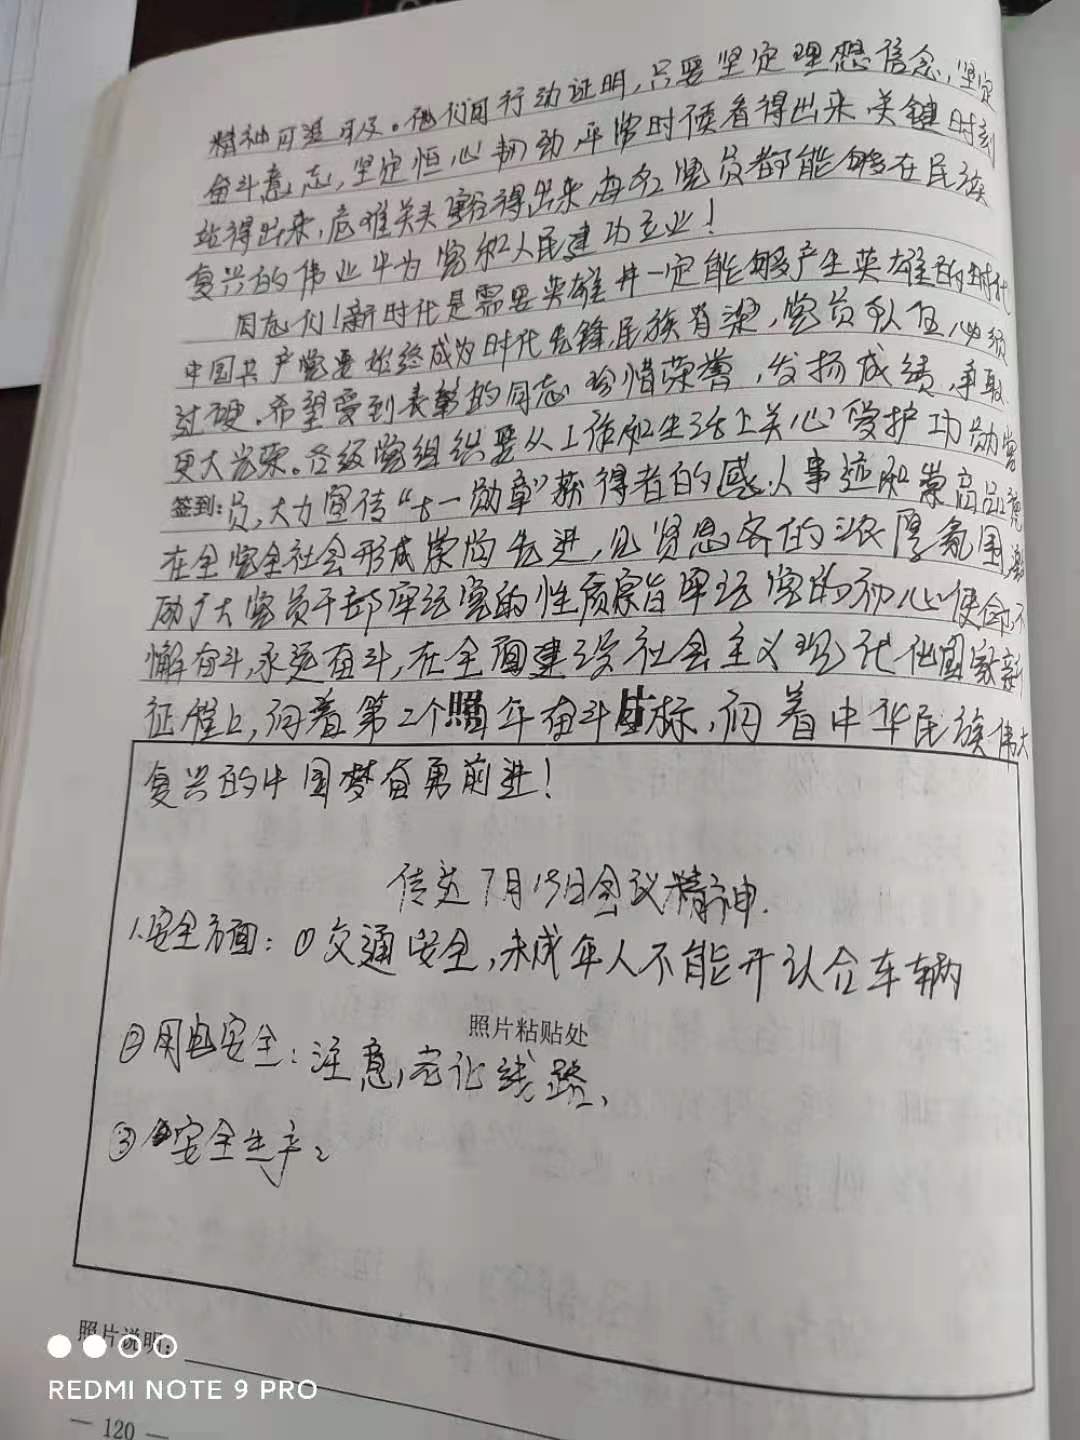 精神可追可及。他们用行动证明，只要坚定理想信念，坚定
奋斗意志，坚定恒心韧劲，平常时候看得出来，关键时刻
站得出来，危难关头豁得出来，每名党员都能够在民族
复兴的伟业中为党和人民建功立业！
同志们！新时代是需要英雄并一定能够产生英雄的时代
中国共产党要始终成为时代先锋，民族脊梁，党员队伍必须
过硬。希望受到表彰的同志，珍惜荣誉，发扬成绩，争取
更大光荣。各级党组织要从工作和生活上关心爱护功勋党
签到：员，大力宣传“七一勋章”获得者的感人事迹和崇高品德
在全党全社会形成崇尚先进，见贤思齐的浓厚氛围，激
励广大党员干部牢记党的性质宗旨牢记党的初心使命，不
懈奋斗，永远奋斗，在全面建设社会主义现代化国家新
征程上，向着第2个 年奋斗 标，向着中华民族伟大
复兴的中国梦奋勇前进！
传达7月15日会议精神.
1.安全方面：①交通安全，未成年人不能开 合车辆
照片粘贴处
②用电安全：注意，老化线路、
③安全生产
照片说明：
REDMI NOTE 9 PRO
— 120 —